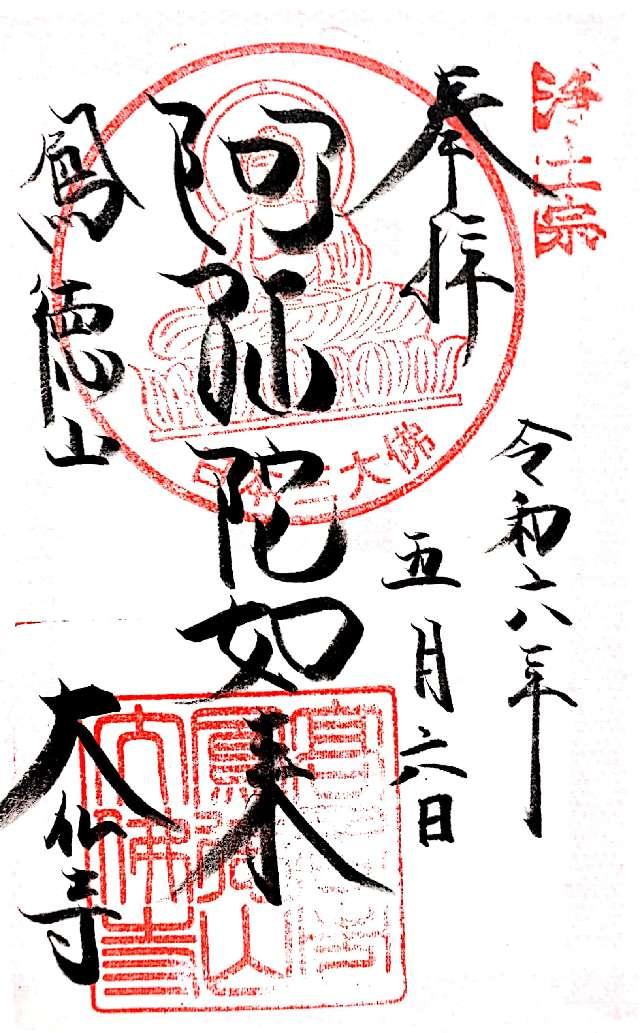 浄土宗
奉拝
令和六年
五月六日
阿弥陀如来
日本三大佛
鳳徳山
大仏寺
鳳徳山
大佛寺